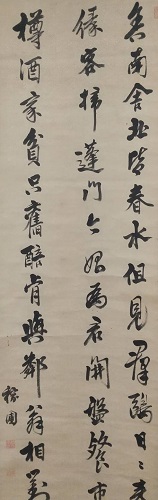 舍南舍北皆春水但見羣鷗日〻來
緣客掃蓬門今始為君開盤飧市
樽酒家貧只舊醅肯與鄰翁相對